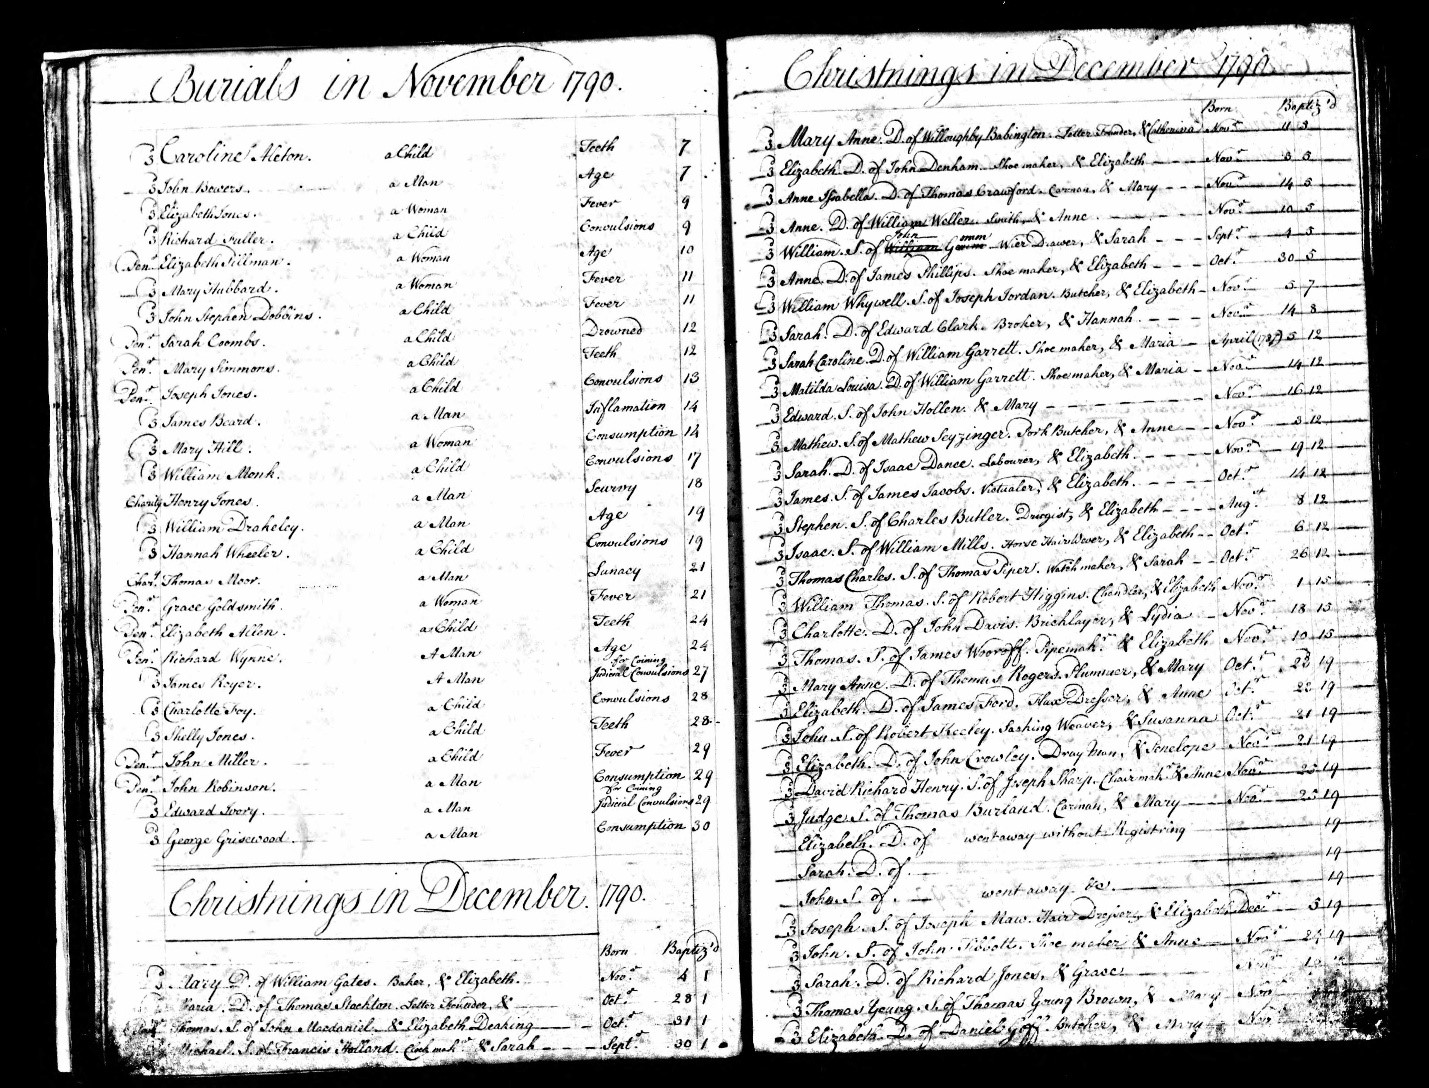 Burials in November 1790.
3 Caroline Aleton. a Child Teeth 7
3 John Bowers. a Man Age 7
3 Elizabeth Jones. a Woman Fever 9
3 Richard Fuller. a Child Convulsions 9
Pen.r Elizabeth Pillman. a Woman Age 10
3 Mary Hubbard. a Woman Fever 11
3 John Stephen Dobbins. a Child Fever 11
Pen.r Sarah Coombs. a Child Drowned 12
Pen.r Mary Simmons. a Child Teeth 12
Pen.r Joseph Jones. a Child Convulsions 13
3 James Beard. a Man Inflamation 14
3 Mary Hill. a Woman Consumption 14
3 William Monk. a Child Convulsions 17
Charity Henry Jones. a Man Scurvy 18
3 William Drakeley. a Man Age 19
3 Hannah Wheeler. a Child Convulsions 19
Char. Thomas Moor. a Man Lunacy 21
Pen.r Grace Goldsmith. a Woman Fever 21
Pen.r Elizabeth Allen. a Child Teeth 24
Pen.r Richard Wynne. A Man Age 24
3 James Royer. A Man for Coining Judicial Convulsions 27
3 Charlotte Foy. a Child Convulsions 28
3 Shelly Jones. a Child Teeth 28
Pen.r John Miller. a Child Fever 29
Pen.r John Robinson. a Man Consumption 29
3 Edward Ivory. a Man for Coining Judicial Convulsions 29
3 George Grisewood. a Man Consumption 30
Christnings in December. 1790.
Born Baptiz'd
3 Mary D. of William Gates. Baker, & Elizabeth. Nov.r 4 1
Maria. D. of Thomas Stockton. Letter Founder, & Oct.r 28 1
Thomas. S. of John Macdaniel, & Elizabeth Deaking Oct.r 31 1
Michael. S. of Francis Holland. Clock mak.r & Sarah Sept.r 30 1
Christnings in December 1790.
Born Baptiz'd
3 Mary Anne. D. of Willoughby Babington. Letter Founder, & Catherine Nov.r 11 3
3 Elizabeth. D. of John Denham. Shoe maker, & Elizabeth Nov.r 3 5
3 Anne Issabella. D. of Thomas Crawford. Carman, & Mary Nov.r 14 5
3 Anne. D. of William Weller. Smith, & Anne Nov.r 10 5
3 William. S. of John Gomm Wier Drawer, & Sarah Sept.r 4 5
3 Anne. D. of James Phillips. Shoe maker, & Elizabeth Oct.r 30 5
3 William Whywell. S. of Joseph Jordan. Butcher, & Elizabeth Nov.r 5 7
3 Sarah. D. of Edward Clark. Broker, & Hannah Nov.r 14 8
3 Sarah Caroline. D. of William Garrett. Shoe maker, & Maria April 5 12
3 Matilda Louisa. D. of William Garrett. Shoe maker, & Maria Nov.r 14 12
3 Edward. S. of John Hollen. & Mary Nov.r 16 12
3 Mathew. S. of Mathew Seyzinger. Pork Butcher, & Anne Nov.r 3 12
3 Sarah. D. of Isaac Dance. Labourer, & Elizabeth. Nov.r 19 12
3 James. S. of James Jacobs. Victualer, & Elizabeth. Oct.r 14 12
3 Stephen. S. of Charles Butler. Drugist, & Elizabeth Aug.st 8 12
3 Isaac. S. of William Mills. Horse Hair Wever, & Elizabeth Oct.r 6 12
3 Thomas Charles. S. of Thomas Piper. Watch maker, & Sarah Oct.r 26 12
3 William Thomas. S. of Robert Higgins. Chandler, & Elizabeth Nov.r 1 15
3 Charlotte. D. of John Davis. Bricklayer, & Lydia Nov.r 18 15
3 Thomas. S. of James Pipemak.r & Elizabeth Nov.r 10 15
3 Mary Anne. D. of Thomas Rogers. Plummer, & Mary Oct.r 28 19
3 Elizabeth. D. of James Ford. Flax Dresser, & Anne Oct.r 22 19
3 John S. of Robert Keeley. Sacking Weaver, & Susanna Oct.r 21 19
3 Elizabeth. D. of John Crowley. Dray Man, & Penelope Nov.r 21 19
3 David Richard Henry. S. of Joseph Sharp. Chairmak.r & Anne Nov.r 25 19
3 Judge. S. of Thomas Burland. Carman, & Mary Nov.r 25 19
Elizabeth. D. of went away without Registring 19
Sarah. D. of 19
John. S. of went away &c. 19
3 Joseph. S. of Joseph Maw. Hair Dresser, & Elizabeth Dec.r 5 19
3 John. S. of John Tibbott. Shoe maker & Anne Nov.r 24 19
3 Sarah. D. of Richard Jones, & Grace Nov.r
3 Thomas Young. S. of Thomas Young Brown, & Mary Nov.r
3 Elizabeth. D. of Daniel Butcher, & Mary Nov.r